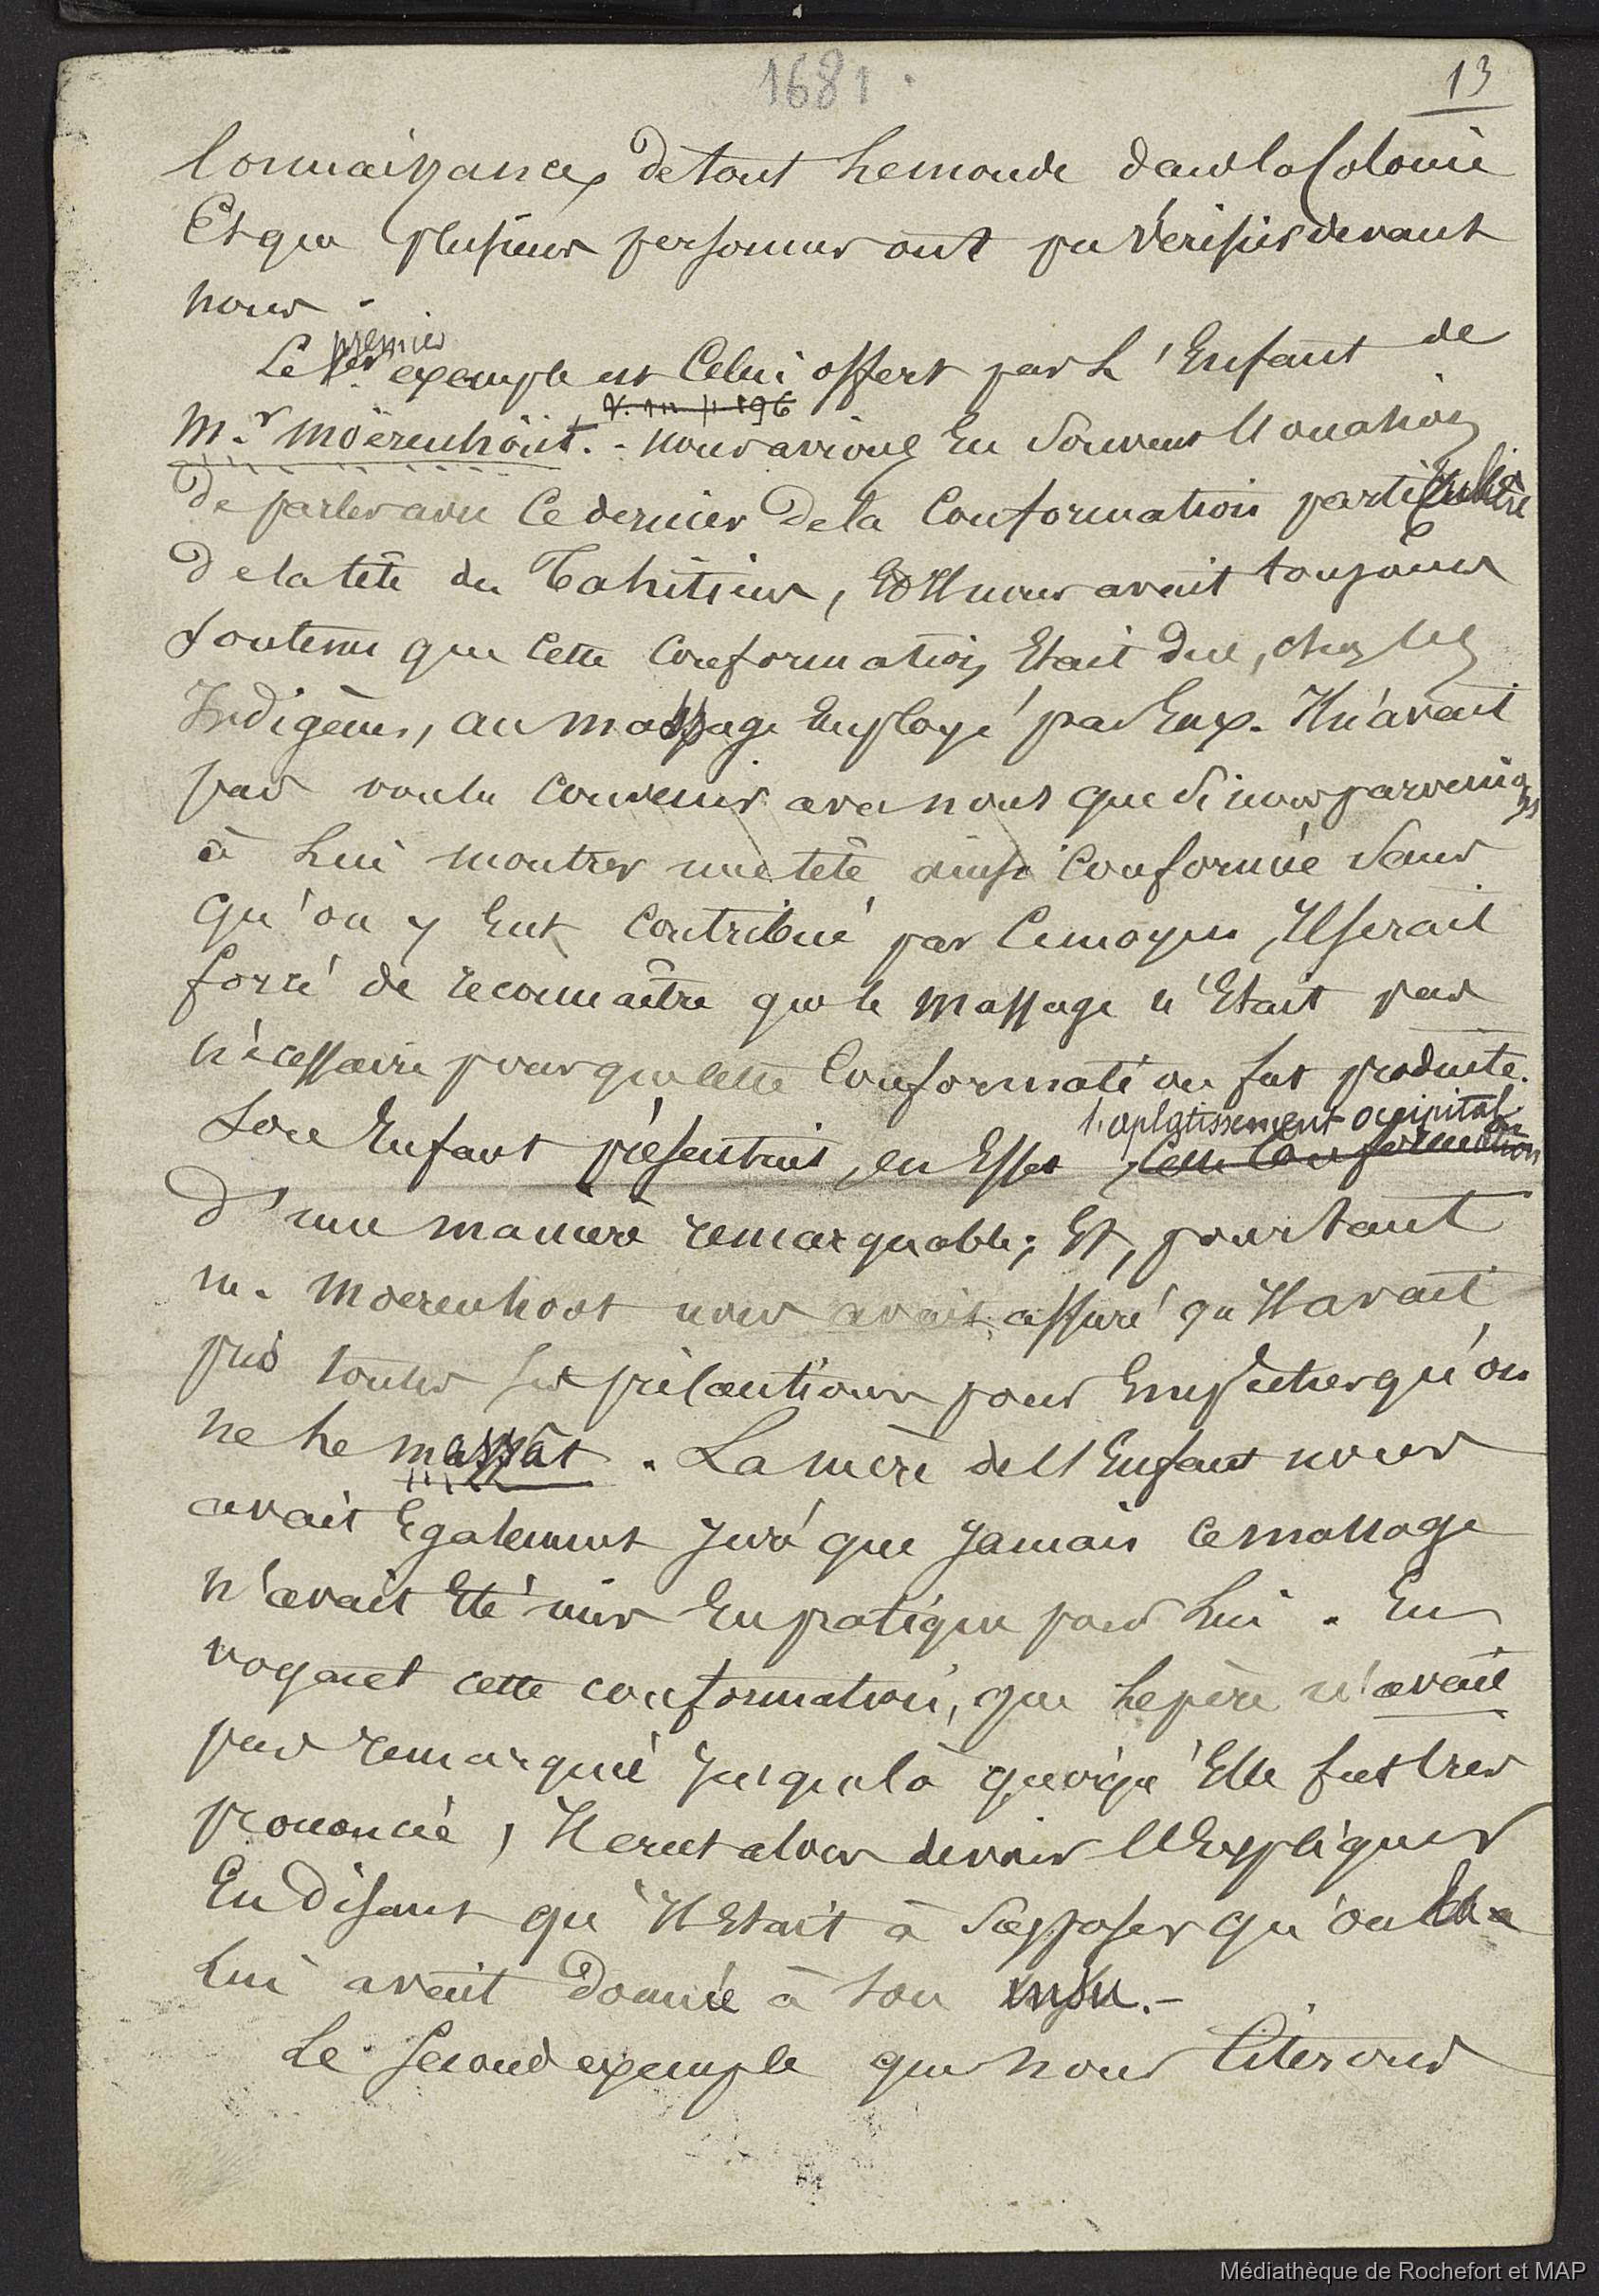 1681.
13
Connaissance de tout le monde dans la Colonie
Et que plusieurs personnes ont pu vérifier devant
nous.
premier
Le 1er exemple est Celui offert par L'Enfant de
Mr. Moërenhöut. - nous avions Eu Souvent l'occasion
De parler avec Ce dernier De la Conformation particulière
De la tête des Tahitiens, Et Il nous avait toujours
Soutenu que Cette Conformation Etait due, chez les
Indigènes, au massage Employé par Eux. Il n'avait
pas voulu Convenir avec nous que Si nous parvenions
à Lui montrer une tête ainsi Conformée Sans
qu'on y Eut Contribué par Ce moyen, Il serait
forcé de reconnaître que le massage n'Etait pas
nécessaire pour que Cette Conformation fut produite.
l'aplatissement occipital
Son Enfant présentait, en Effet Cette Conformation
D'une manière remarquable; Et, pourtant
M. Moerenhout nous avait assuré qu'Il avait
pris toutes les précautions pour Empêcher qu'on
ne le massât. La mère de l'Enfant nous
avait Egalement Juré que Jamais Ce massage
n'avait Eté mis En pratique pour Lui. En
voyant cette conformation, que Le père n'avait
pas remarquée Jusque là quoiqu'Elle fut très
prononcée, Il crut alors devoir l'Expliquer
En Disant qu'Il Etait à Supposer qu'on la
Lui avait Donnée à Son insu.-
Le Second exemple que nous Citerons
Médiathèque de Rochefort et MAP